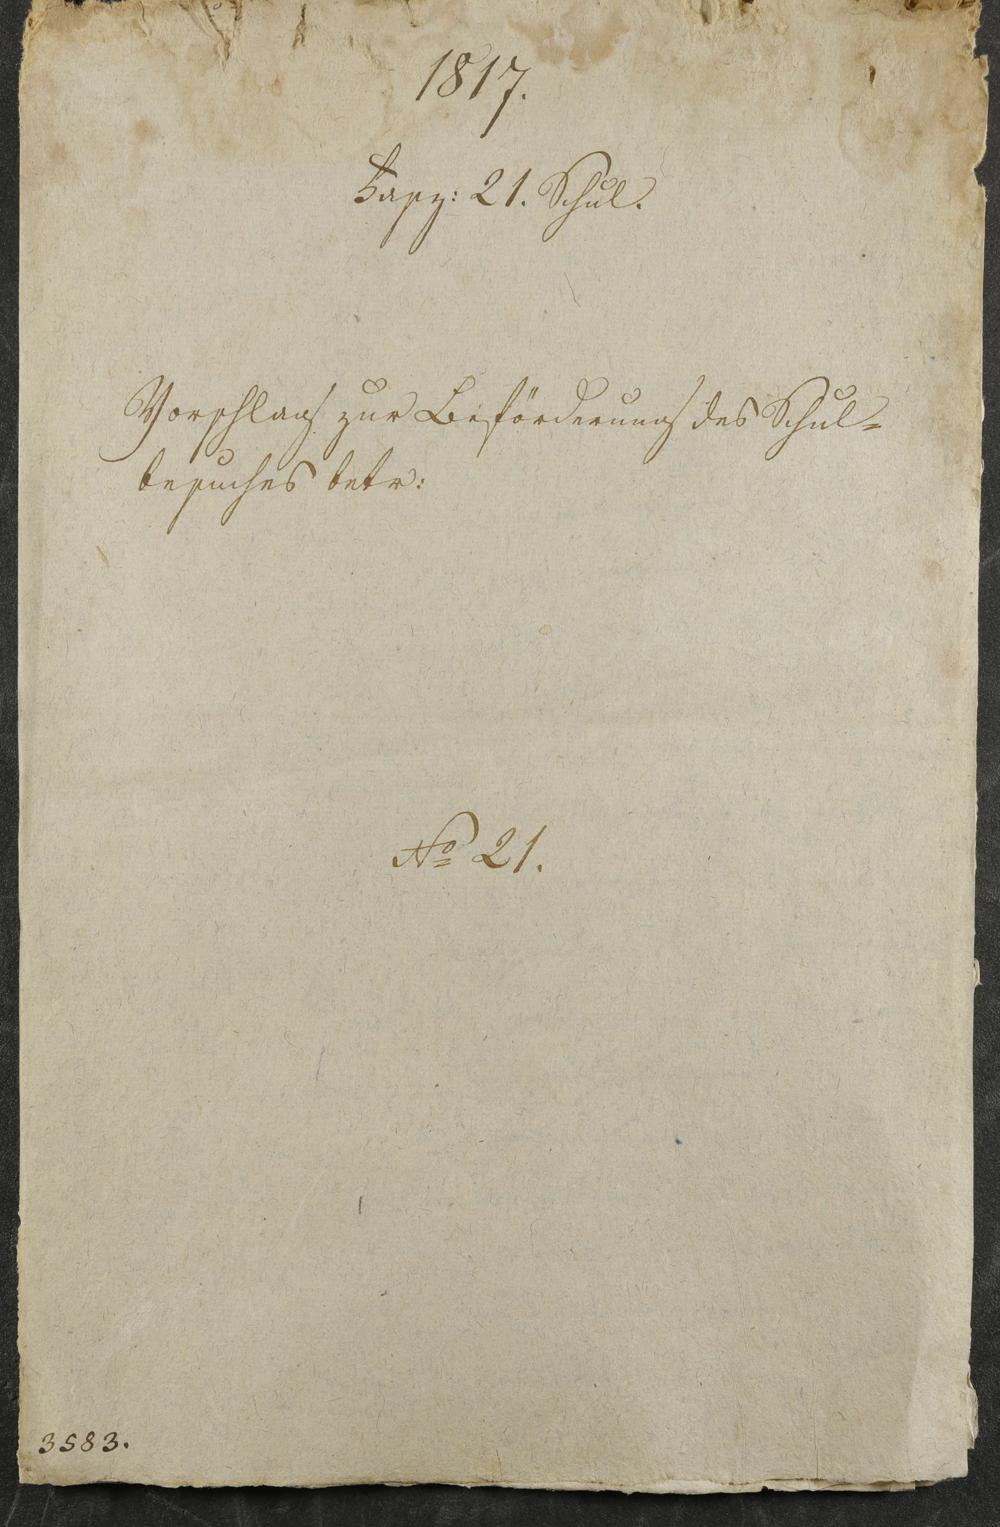 1817.
Fasz: 21. Schul.
Vorschlag zur Beförderung des Schul-
besuches betr:
No 21.
3583.